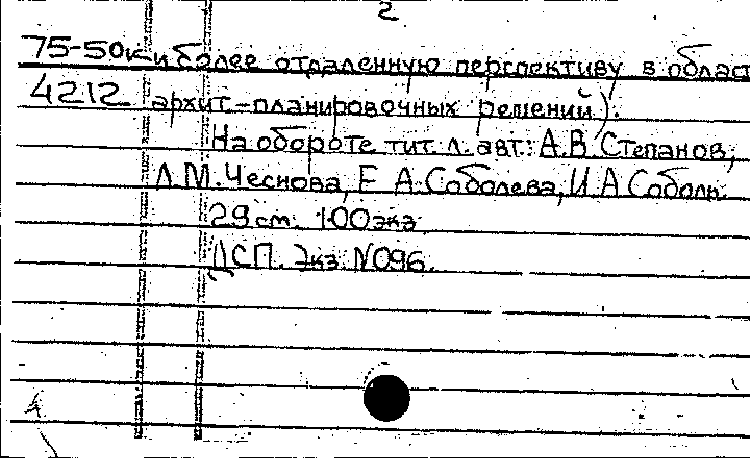 2
75-50к и более отдаленную перспективу в област
4212 архит-планировочных решений).
На обороте тит. л. авт.: А.В. Степанов,
Л.М. Чеснова, Е.А. Соболева, И.А. Соболь.
29 см. 100 экз.
ДСП. Экз. №096.